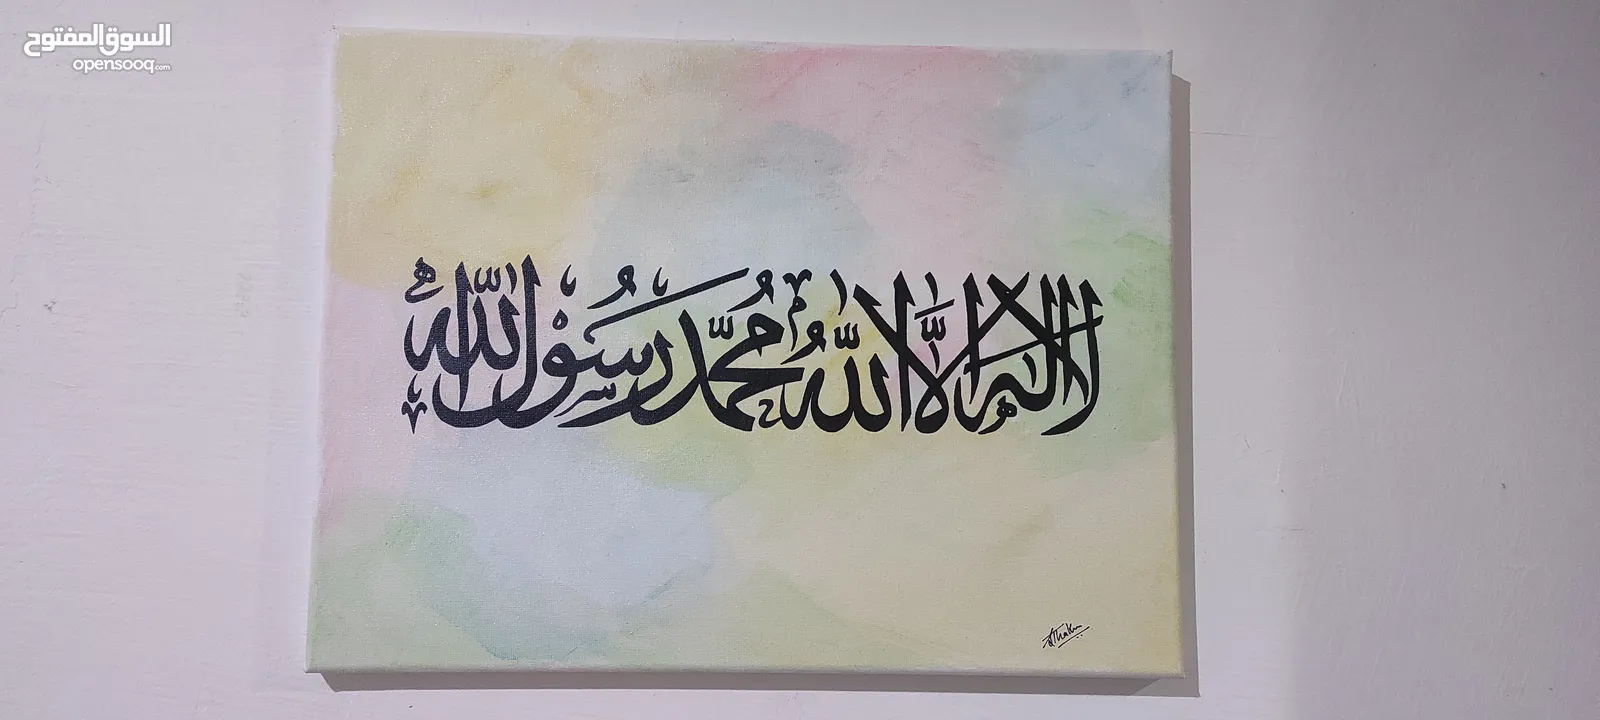 السوق المفتوح
opensooq.com
لا إله إلا الله محمد رسول الله